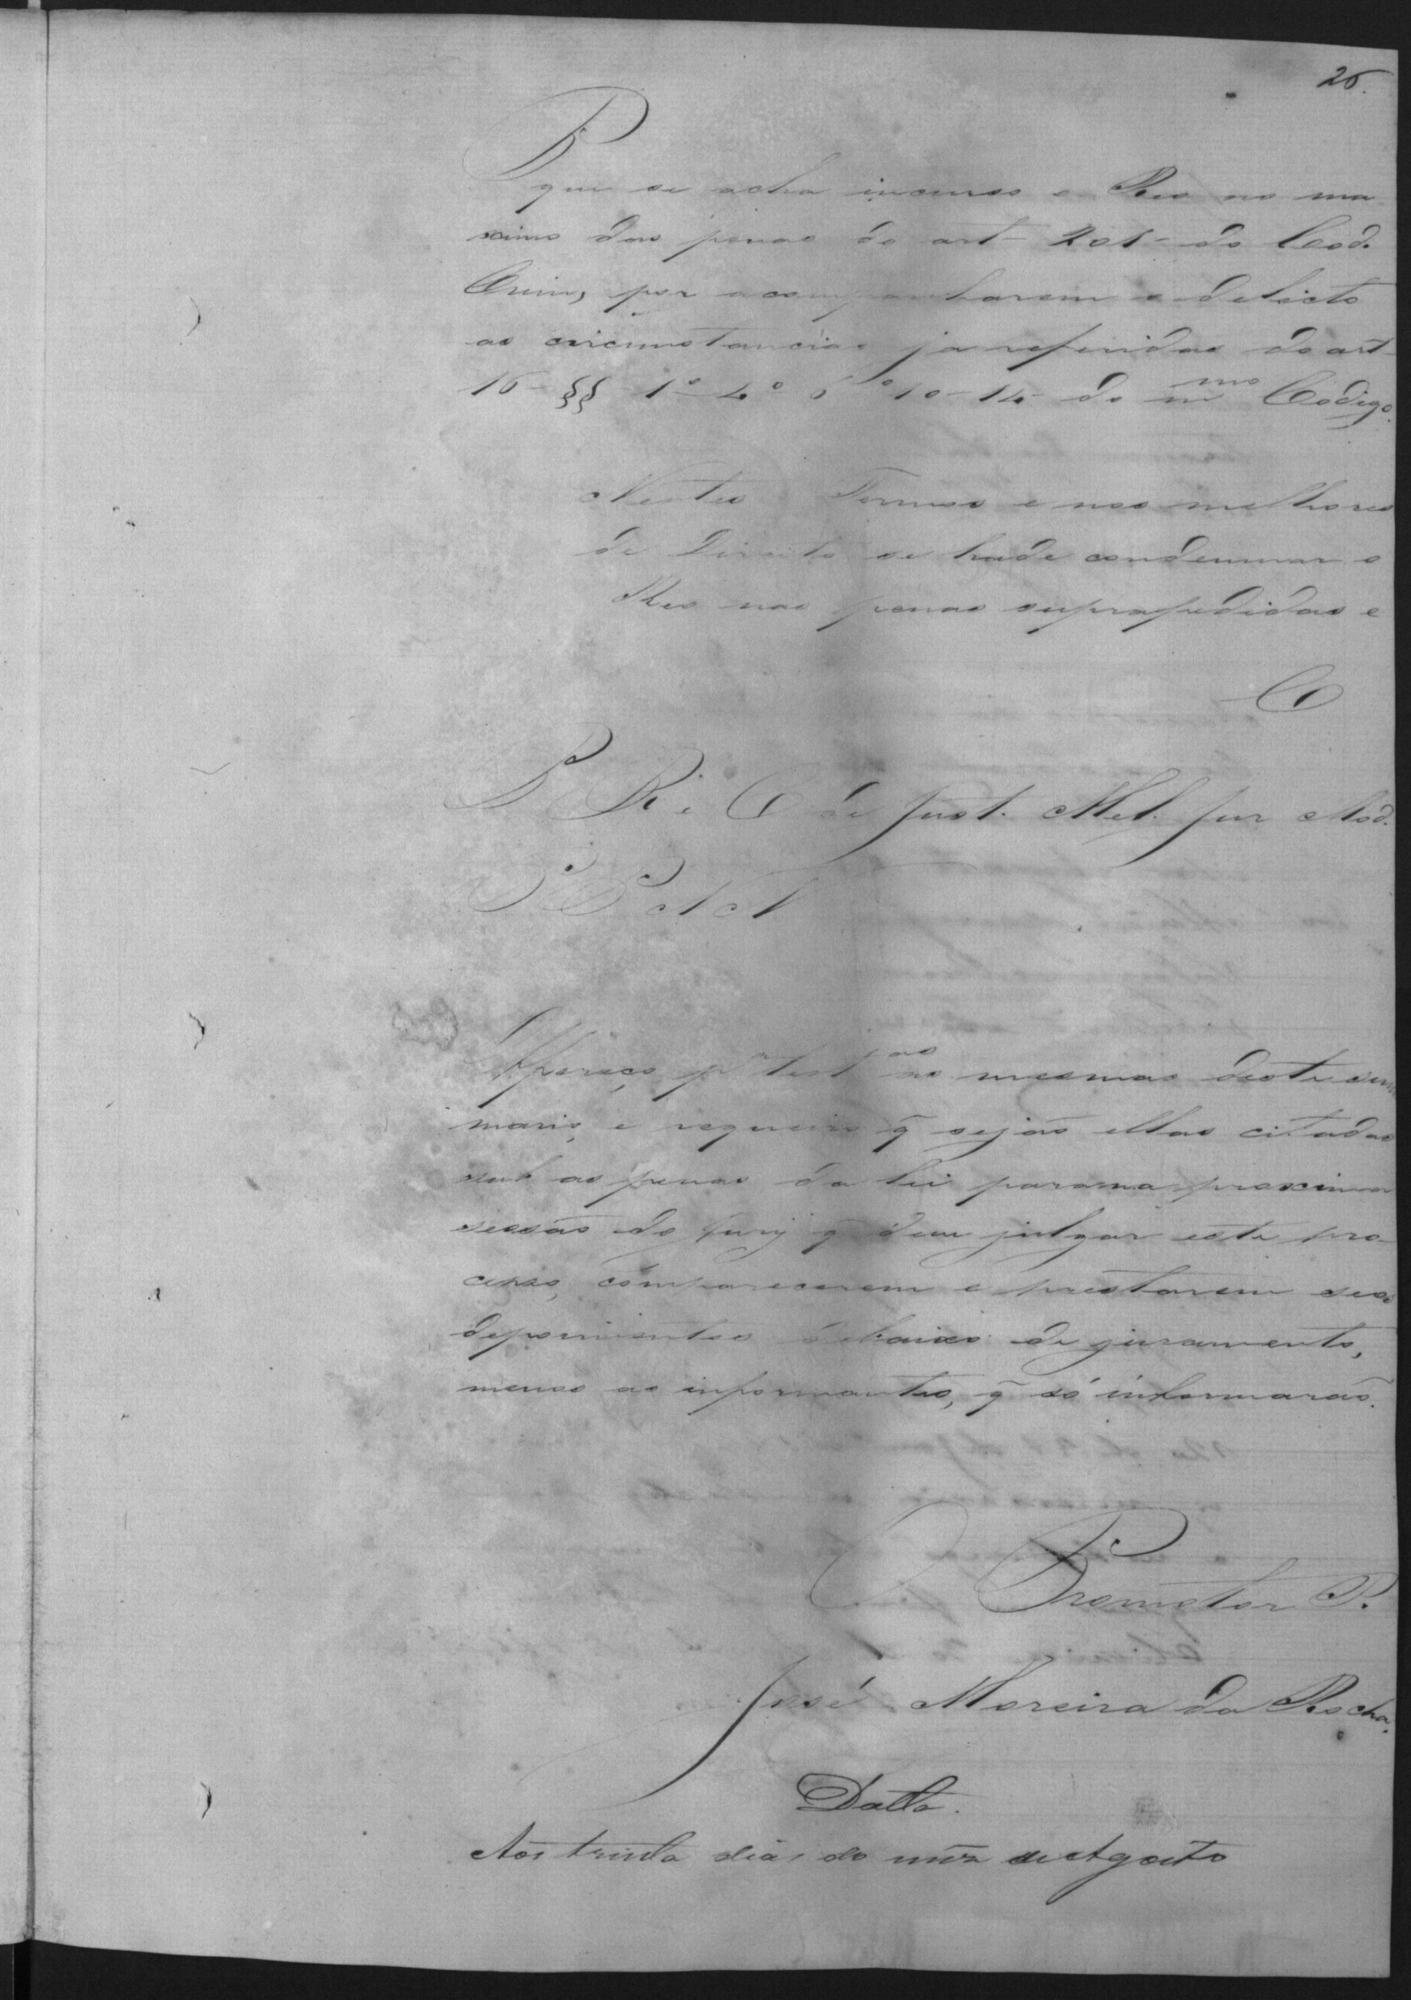 26.
P
que se acha incurso o Reo no ma-
ximo das penas do art- 201- do Cod.
Crim, por acompanharem o delicto
as circumstancias ja referidas do art-
16- §§- 1º- 4º 6º 10- 14- do mmo Codigo.
Nestes Termos e nos melhores
de Direito se hade condemnar o
Reo nas penas suprapedidas e
C
P R. e C de Just. Mel. Jur Mod.
P P N N
Offereço pr test as mesmas deste sum
mario, e requeiro q̃ sejão ellas citadas
sub as penas da lei para na proxima
sessão do Jury q̃ tem julgar este pro-
cesso, comparecerem e prestarem seos
depoimentos debaixo de juramento,
menos as informantes, q̃ só informarão.
O Promotor P.
José Moreira da Rocha.
Datta.
Aos trinta dias do mez de Agosto